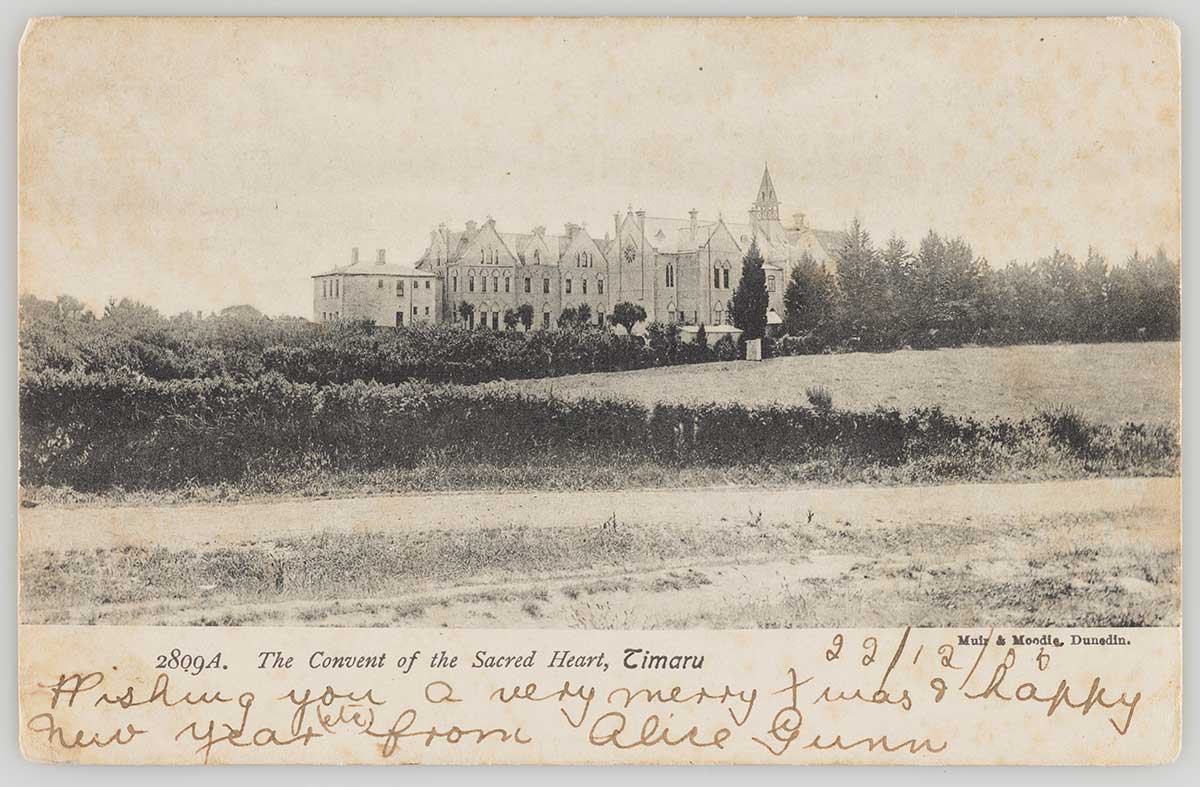 2809A. The Convent of the Sacred Heart, Timaru
Muir & Moodie, Dunedin.
22/12/06
Wishing you a very merry Xmas & happy
New year (etc) from Alice Gunn